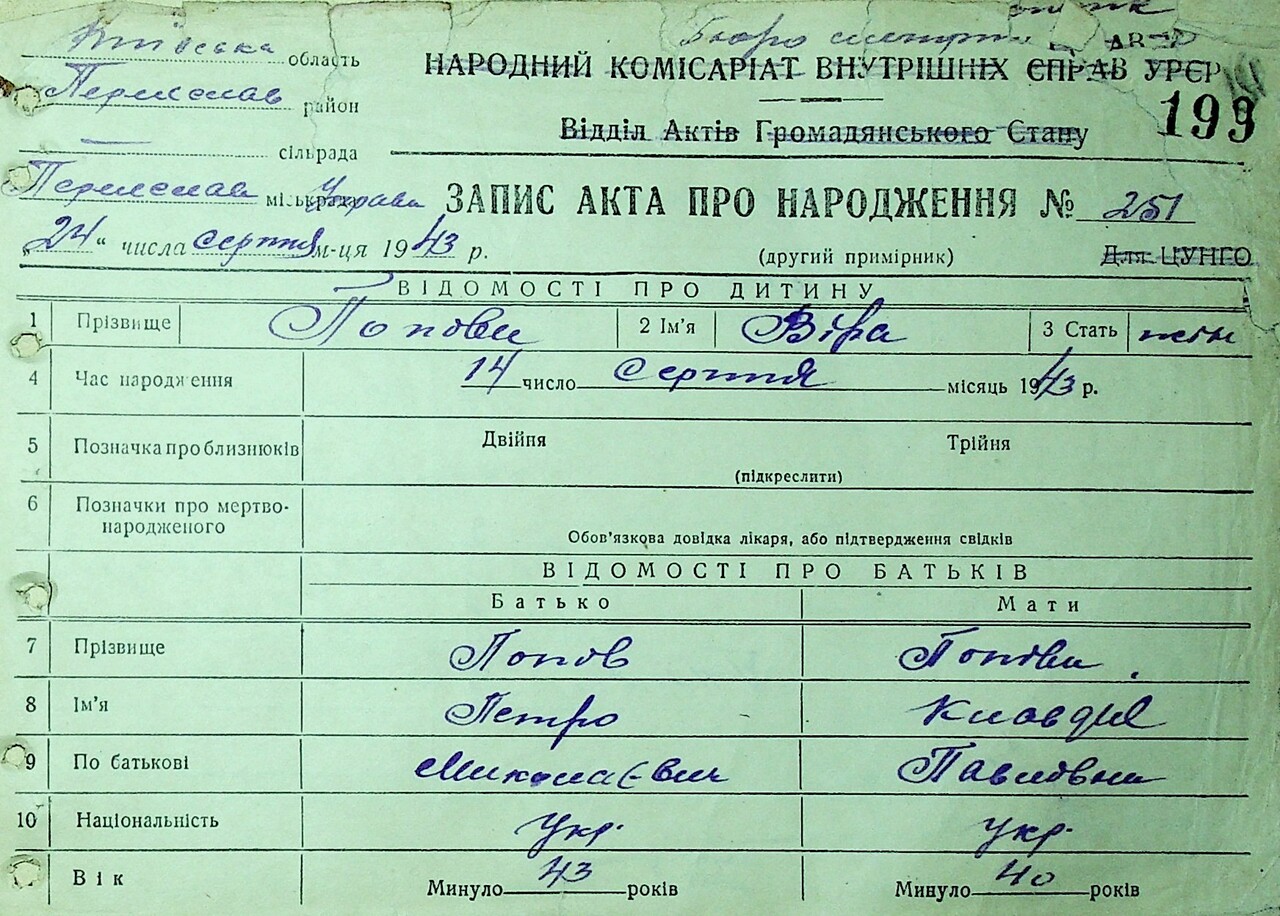 Київська область
Переяслав район
сільрада
Переяслав міськрада Управа
„24“ числа серпня м-ця 1943 р.
Бюро
НАРОДНИЙ КОМІСАРІАТ ВНУТРІШНІХ СПРАВ УРСР
199
Відділ Актів Громадянського Стану
ЗАПИС АКТА ПРО НАРОДЖЕННЯ № 251
(другий примірник)
Для ЦУНГО
ВІДОМОСТІ ПРО ДИТИНУ
1 Прізвище Попова 2 Ім'я Віра 3 Стать жін
4 Час народження 14 число серпня місяць 1943 р.
5 Позначка про близнюків Двійня Трійня
(підкреслити)
6 Позначки про мертво-
народженого
Обов'язкова довідка лікаря, або підтвердження свідків
ВІДОМОСТІ ПРО БАТЬКІВ
Батько Мати
7 Прізвище Попов Попова
8 Ім'я Петро Клавдія
9 По батькові Миколаєвич Павловна
10 Національність Укр. Укр.
Вік Минуло 43 років Минуло 40 років